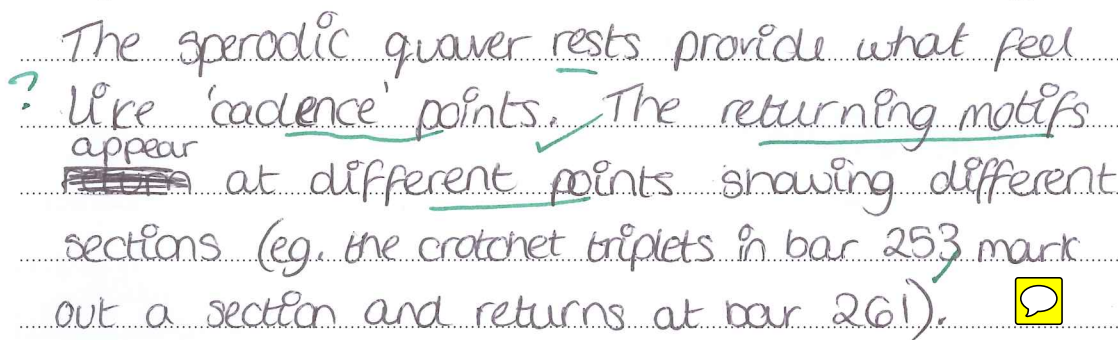 The sperodic quaver rests provide what feel
? like 'cadence' points. The returning motifs
appear
at different points showing different
sections (eg. the crotchet triplets in bar 253 mark
out a section and returns at bar 261).